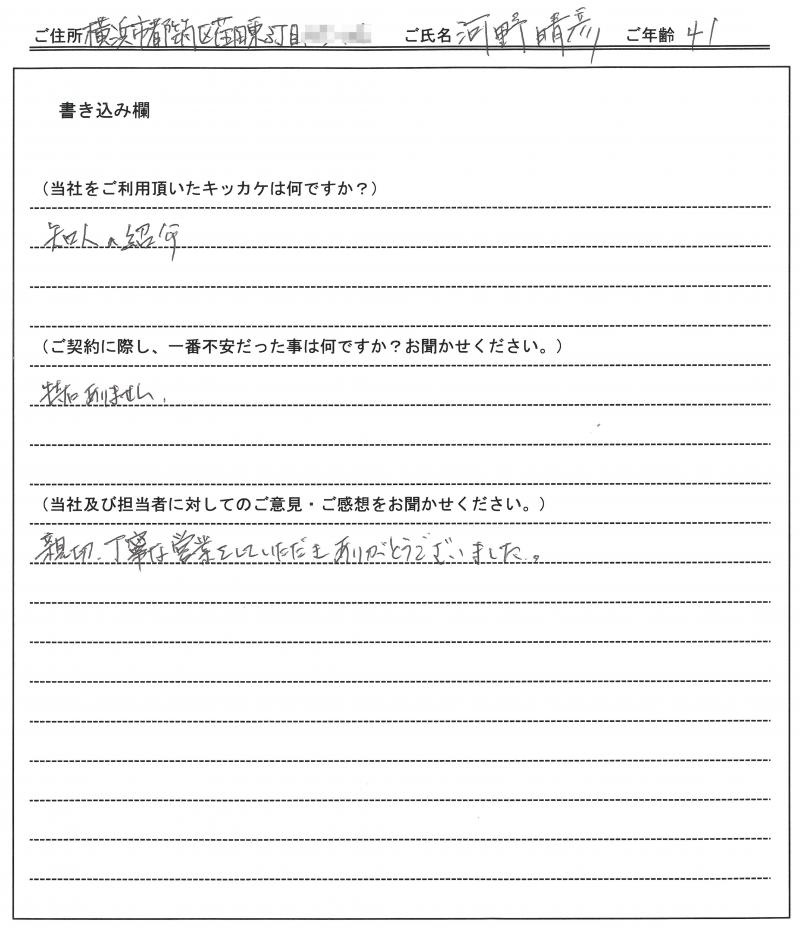 ご住所 横浜市都筑区荏田東3丁目 ご氏名 河野晴彦 ご年齢 41
書き込み欄
（当社をご利用頂いたキッカケは何ですか？）
知人の紹介
（ご契約に際し、一番不安だった事は何ですか？お聞かせください。）
特にありません.
（当社及び担当者に対してのご意見・ご感想をお聞かせください。）
親切、丁寧な営業をしていただきありがとうございました。